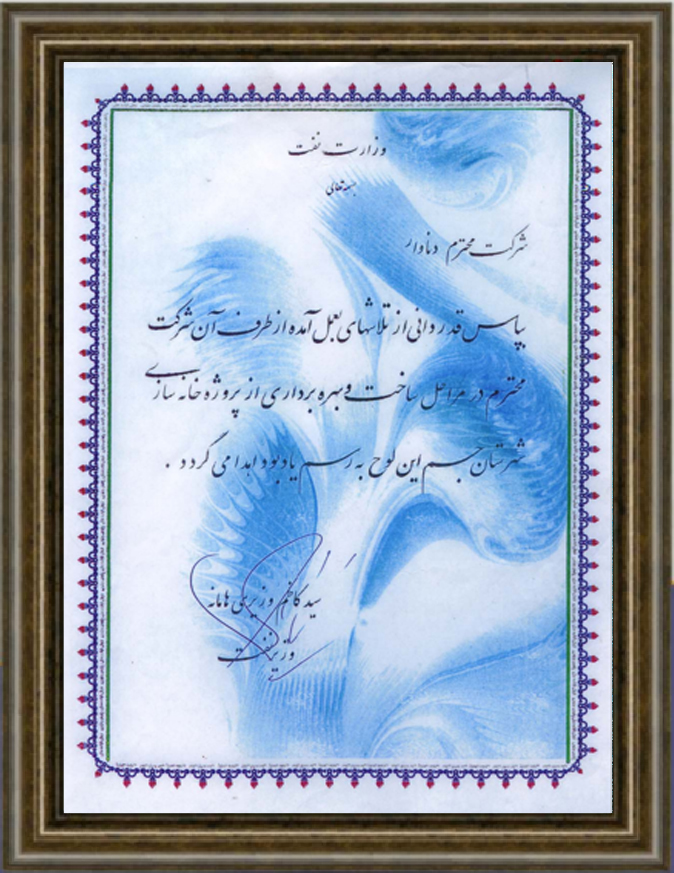 وزارت نفت
بسمه تعالی
شرکت محترم دناوار
بپاس قدردانی از تلاشهای بعمل آمده از طرف آن شرکت
محترم در مراحل ساخت و بهره برداری از پروژه خانه سازی
شهرستان جم این لوح به رسم یادبود اهدا می گردد .
سید کاظم وزیری هامانه
وزیر نفت